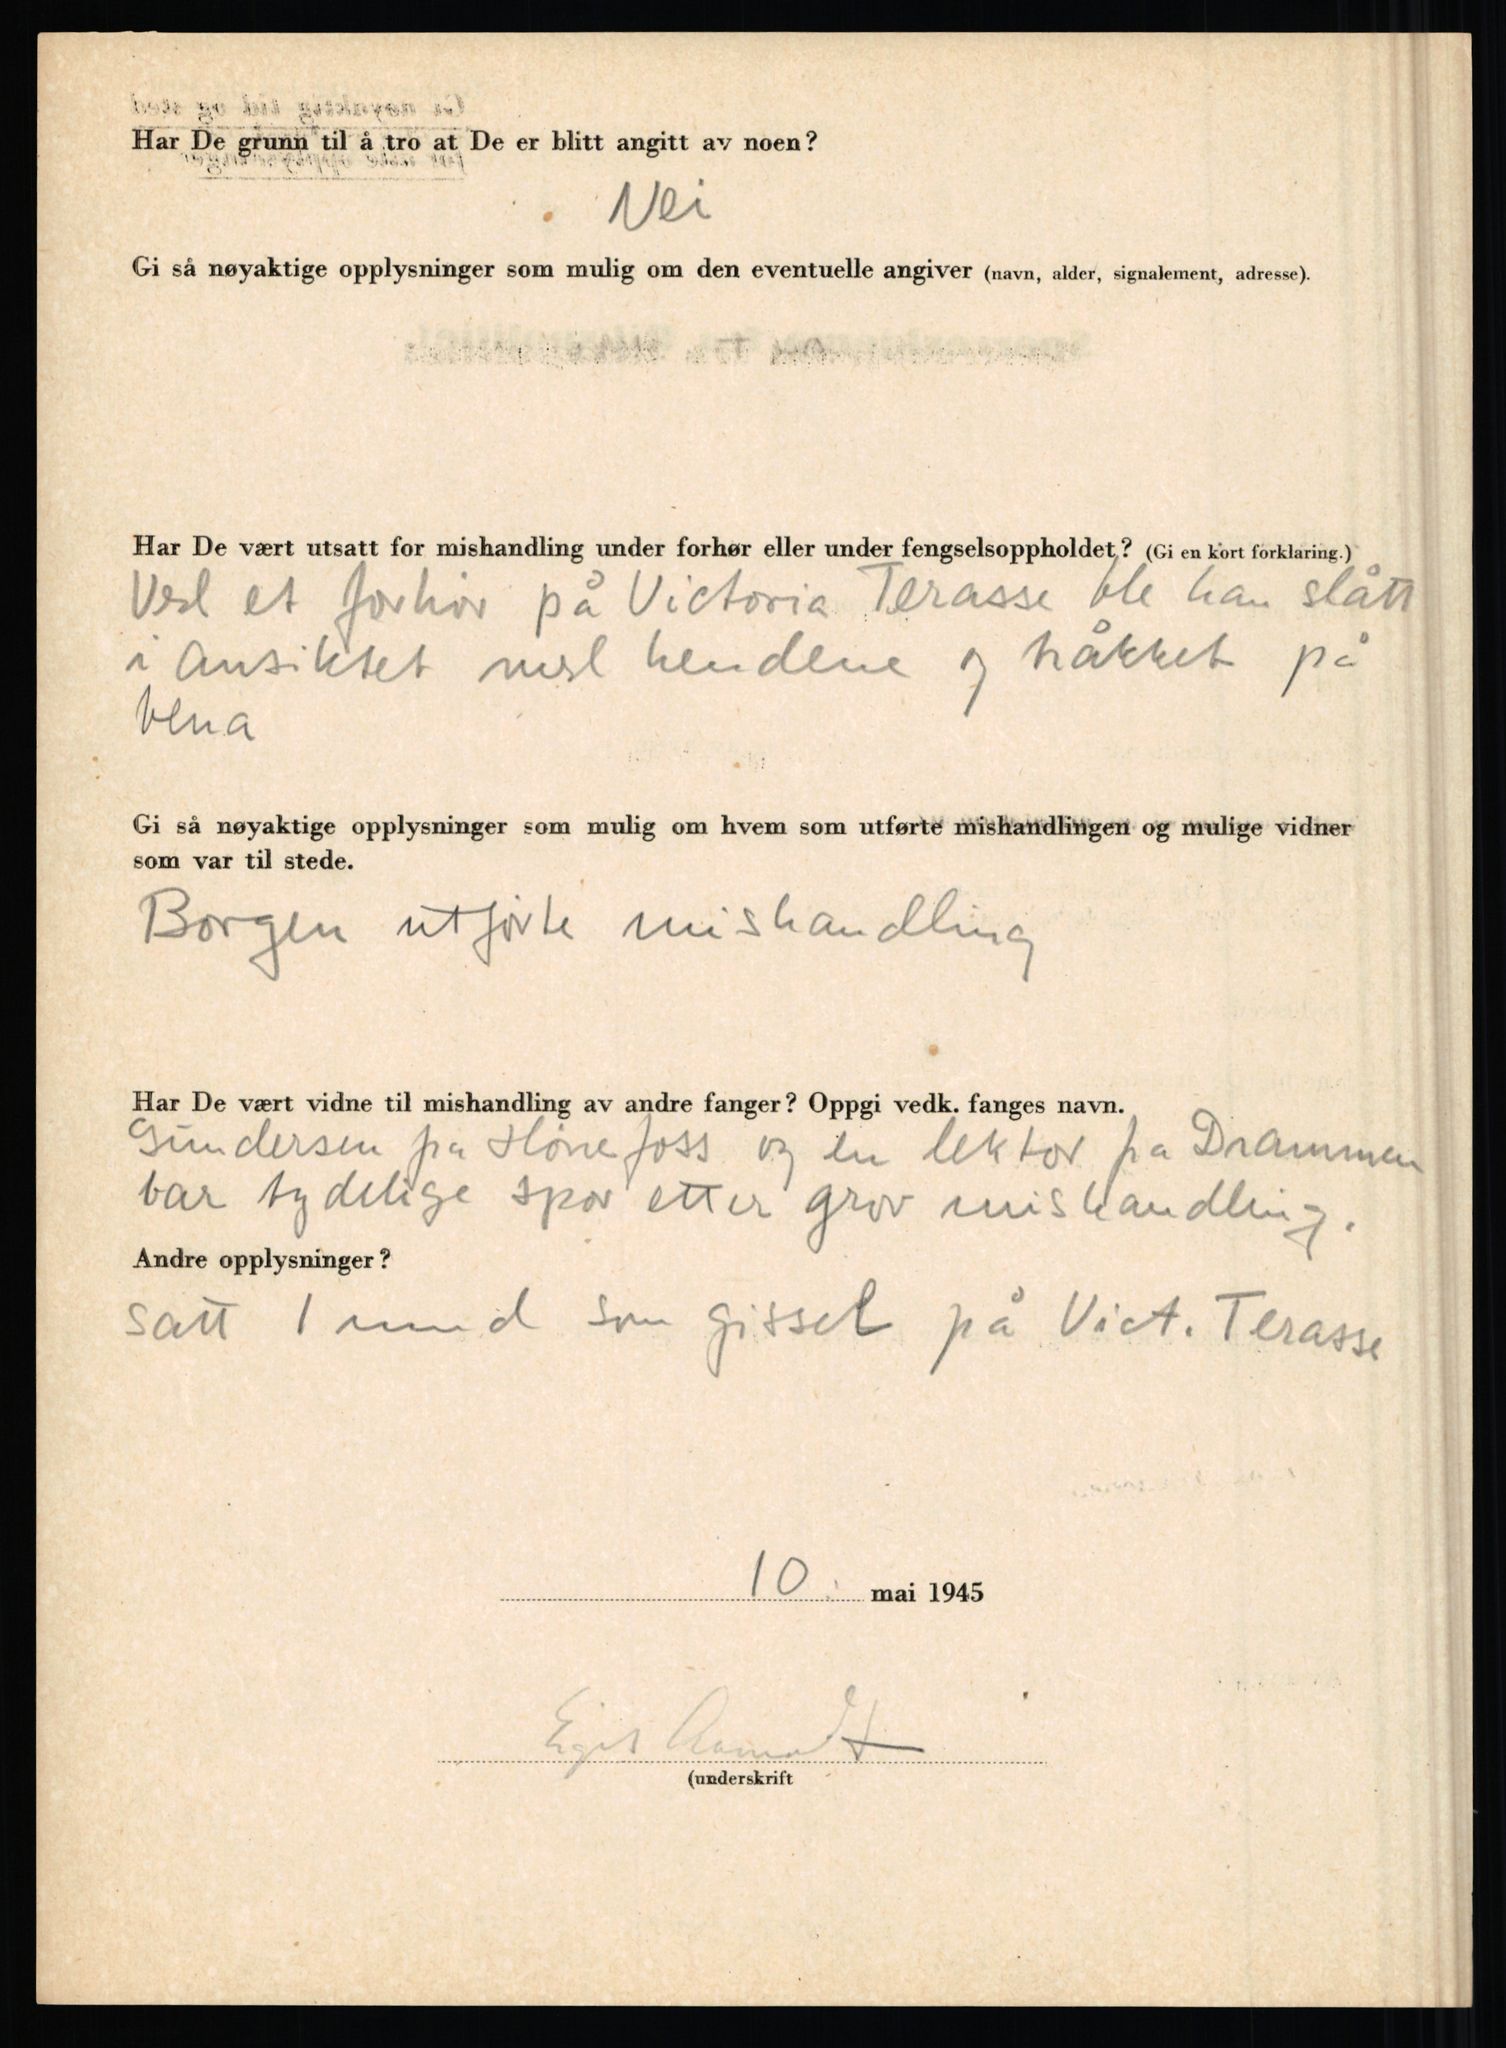 Har De grunn til å tro at De er blitt angitt av noen?
Nei
Gi så nøyaktige opplysninger som mulig om den eventuelle angiver (navn, alder, signalement, adresse).
Har De vært utsatt for mishandling under forhør eller under fengselsoppholdet? (Gi en kort forklaring.)
Ved et forhør på Victoria Terasse ble han slått
i ansiktet med hendene og tråkket på
bena
Gi så nøyaktige opplysninger som mulig om hvem som utførte mishandlingen og mulige vidner
som var til stede.
Borgen utførte mishandling
Har De vært vidne til mishandling av andre fanger? Oppgi vedk. fanges navn.
Gundersen fra Hønefoss og en lektor fra Drammen
bar tydelige spor etter grov mishandling.
Andre opplysninger?
satt 1 mnd som gissel på Vict. Terasse
10. mai 1945
(underskrift